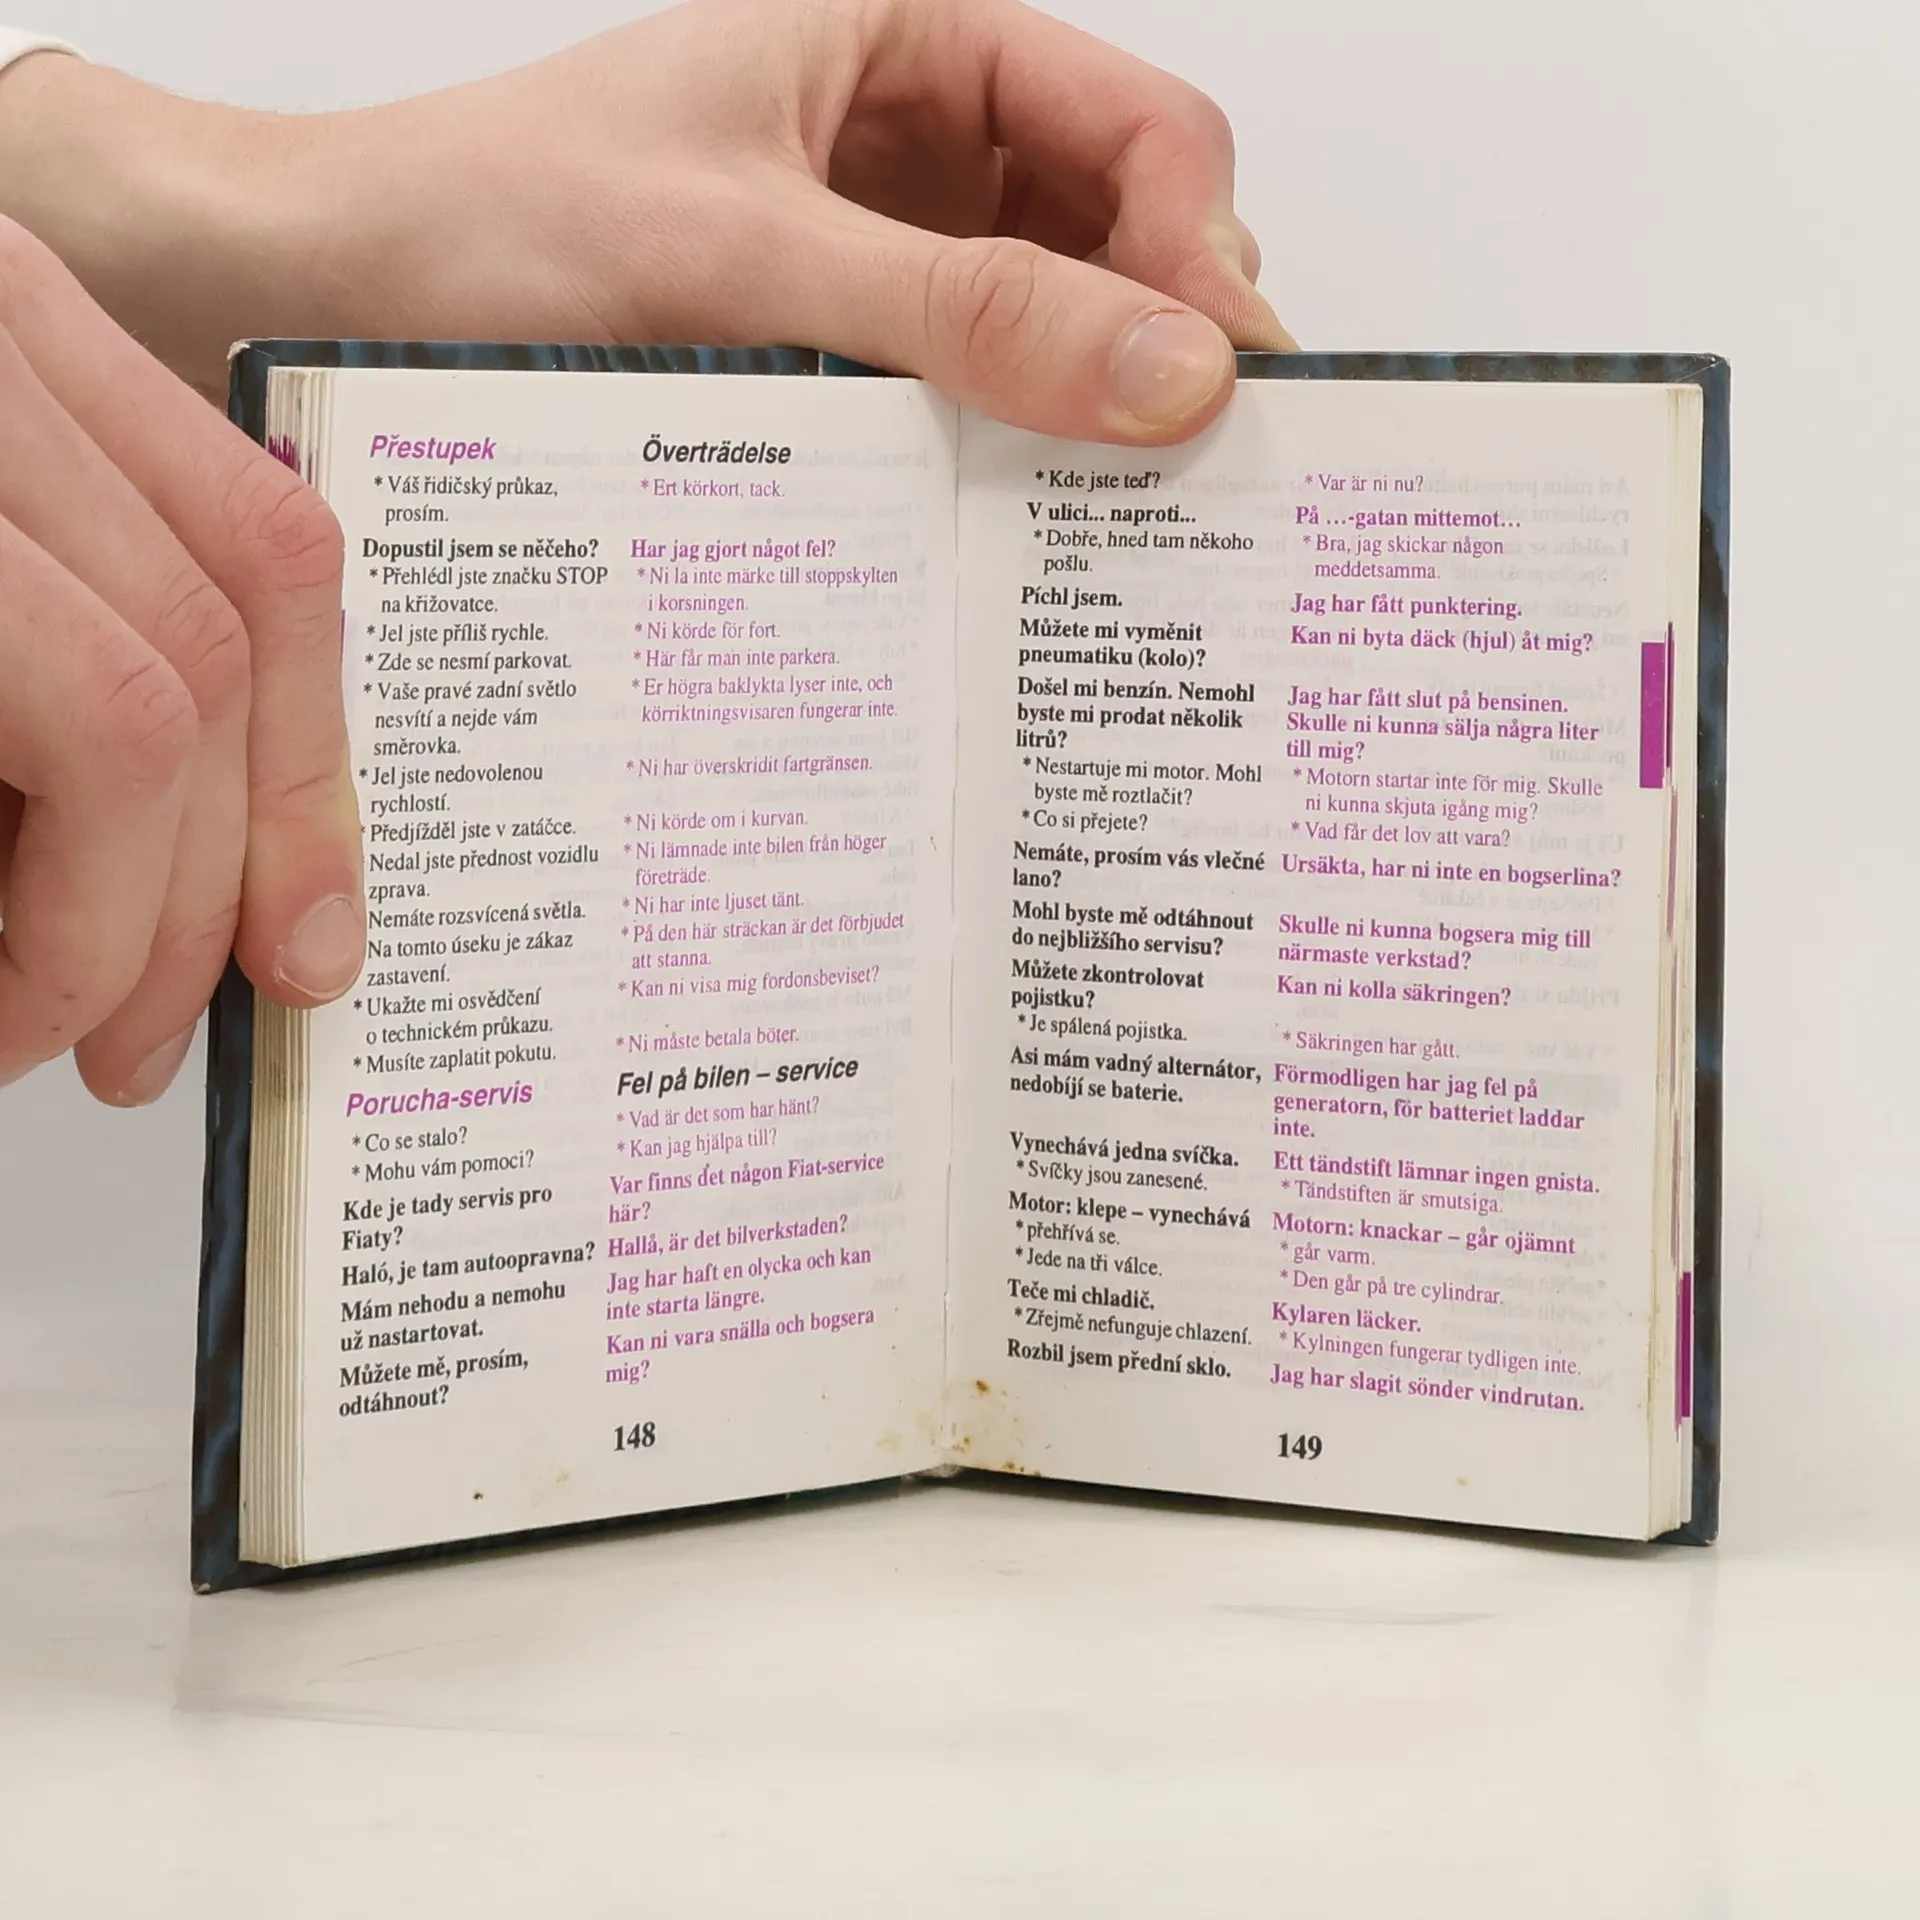 Přestupek
* Váš řidičský průkaz,
prosím.
Dopustil jsem se něčeho?
* Přehlédl jste značku STOP
na křižovatce.
* Jel jste příliš rychle.
* Zde se nesmí parkovat.
* Vaše pravé zadní světlo
nesvítí a nejde vám
směrovka.
* Jel jste nedovolenou
rychlostí.
* Předjížděl jste v zatáčce.
Nedal jste přednost vozidlu
zprava.
Nemáte rozsvícená světla.
Na tomto úseku je zákaz
zastavení.
* Ukažte mi osvědčení
o technickém průkazu.
* Musíte zaplatit pokutu.
Porucha-servis
* Co se stalo?
* Mohu vám pomoci?
Kde je tady servis pro
Fiaty?
Haló, je tam autoopravna?
Mám nehodu a nemohu
už nastartovat.
Můžete mě, prosím,
odtáhnout?
Överträdelse
* Ert körkort, tack.
Har jag gjort något fel?
* Ni la inte märke till stoppskylten
i korsningen.
* Ni körde för fort.
* Här får man inte parkera.
* Er högra baklykta lyser inte, och
körriktningsvisaren fungerar inte.
* Ni har överskridit fartgränsen.
* Ni körde om i kurvan.
* Ni lämnade inte bilen från höger
företräde.
* Ni har inte ljuset tänt.
* På den här sträckan är det förbjudet
att stanna.
* Kan ni visa mig fordonsbeviset?
* Ni måste betala böter.
Fel på bilen – service
* Vad är det som har hänt?
* Kan jag hjälpa till?
Var finns det någon Fiat-service
här?
Hallå, är det bilverkstaden?
Jag har haft en olycka och kan
inte starta längre.
Kan ni vara snälla och bogsera
mig?
148
* Kde jste teď?
V ulici... naproti...
* Dobře, hned tam někoho
pošlu.
Píchl jsem.
Můžete mi vyměnit
pneumatiku (kolo)?
Došel mi benzín. Nemohl
byste mi prodat několik
litrů?
* Nestartuje mi motor. Mohl
byste mě roztlačit?
* Co si přejete?
Nemáte, prosím vás vlečné
lano?
Mohl byste mě odtáhnout
do nejbližšího servisu?
Můžete zkontrolovat
pojistku?
* Je spálená pojistka.
Asi mám vadný alternátor,
nedobíjí se baterie.
Vynechává jedna svíčka.
* Svíčky jsou zanesené.
Motor: klepe – vynechává
* přehřívá se.
* Jede na tři válce.
Teče mi chladič.
* Zřejmě nefunguje chlazení.
Rozbil jsem přední sklo.
* Var är ni nu?
På ...-gatan mittemot...
* Bra, jag skickar någon
meddetsamma.
Jag har fått punktering.
Kan ni byta däck (hjul) åt mig?
Jag har fått slut på bensinen.
Skulle ni kunna sälja några liter
till mig?
* Motorn startar inte för mig. Skulle
ni kunna skjuta igång mig?
* Vad får det lov att vara?
Ursäkta, har ni inte en bogserlina?
Skulle ni kunna bogsera mig till
närmaste verkstad?
Kan ni kolla säkringen?
* Säkringen har gått.
Förmodligen har jag fel på
generatorn, för batteriet laddar
inte.
Ett tändstift lämnar ingen gnista.
* Tändstiften är smutsiga.
Motorn: knackar – går ojämnt
* går varm.
* Den går på tre cylindrar.
Kylaren läcker.
* Kylningen fungerar tydligen inte.
Jag har slagit sönder vindrutan.
149